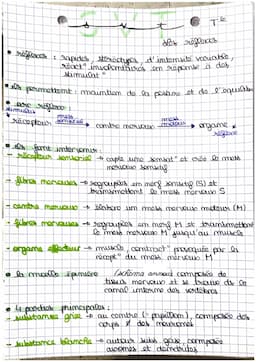 S V T
Tle
les réflexes
• réflexes : rapides, stéréotypés, d'intensité variable,
réact° involontaires en réponse à des
stimulus
• ils permettent : maintien de la posture et de l'équilibre
• arc réflexe :
stimulus
récepteur mess sensitif centre nerveux mess moteur organe
réflexe
• ils font intervenir :
– récepteur sensoriel → capte une sensat° et crée le mess
nerveux sensitif
– fibres nerveuses → regroupées en nerf sensitif (S) et
transmettent le mess nerveux S
– centre nerveux → élabore un mess nerveux moteur (M)
– fibres nerveuses → regroupées en nerf M et transmettent
le mess nerveux M jusqu'au muscle
– organe effecteur → muscle, contract° provoquée par la
récept° du mess nerveux M
• la moelle épinière composée de
tissus nerveux et se trouve ds le
canal interne des vertèbres
• parties principales :
– substance grise → au centre (" papillon), composée des
corps des neurones
– substance blanche → autour subst grise, composée
axones et dendrites